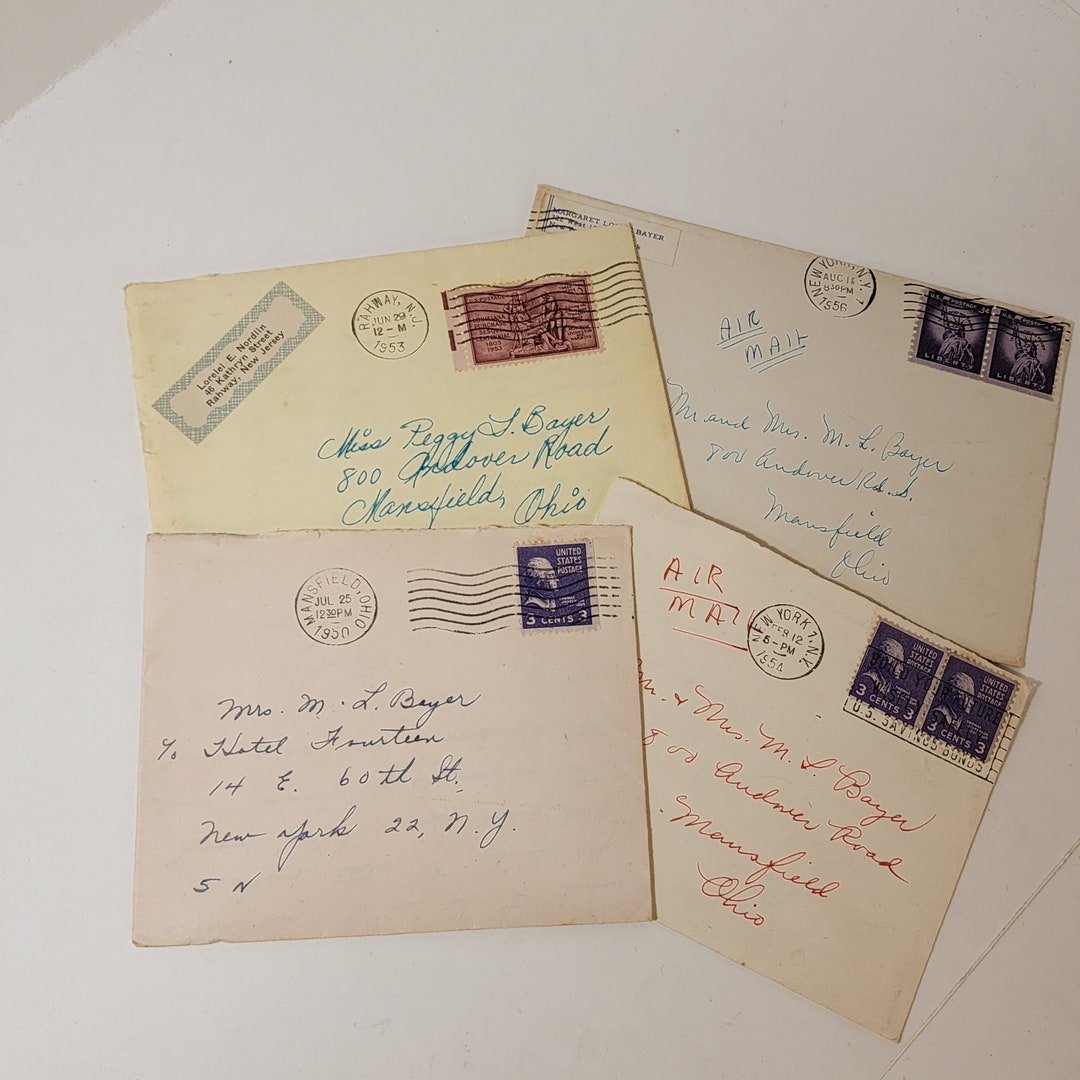 Lorelei E. Nordlin
46 Kathryn Street
Rahway, New Jersey
RAHWAY, N.J.
JUN 29
12 - M
1953
1803
1953
Miss Peggy L. Bayer
800 Andover Road
Mansfield, Ohio
MARGARET LOU BAYER
West
New
NEW YORK, N.Y. 1
AUG
830PM
1956
U.S. POSTAGE 3¢
LIBERTY
U.S. POSTAGE 3¢
LIBERTY
AIR
MAIL
Mr. and Mrs. M. L. Bayer
800 Andover Rd. S.
Mansfield
Ohio
MANSFIELD, OHIO
JUL 25
1230PM
1950
UNITED
STATES
POSTAGE
3 CENTS 3
Mrs. M. L. Bayer
% Hotel Fourteen
14 E. 60th St.
New York 22, N.Y.
5 N
AIR
MAIL
NEW YORK 1, N.Y.
FEB 12
5-PM
1954
UNITED
STATES
POSTAGE
3 CENTS 3
UNITED
STATES
POSTAGE
3 CENTS 3
U.S. SAVINGS BONDS
Mr. & Mrs. M. L. Bayer
800 Andover Road
Mansfield
Ohio